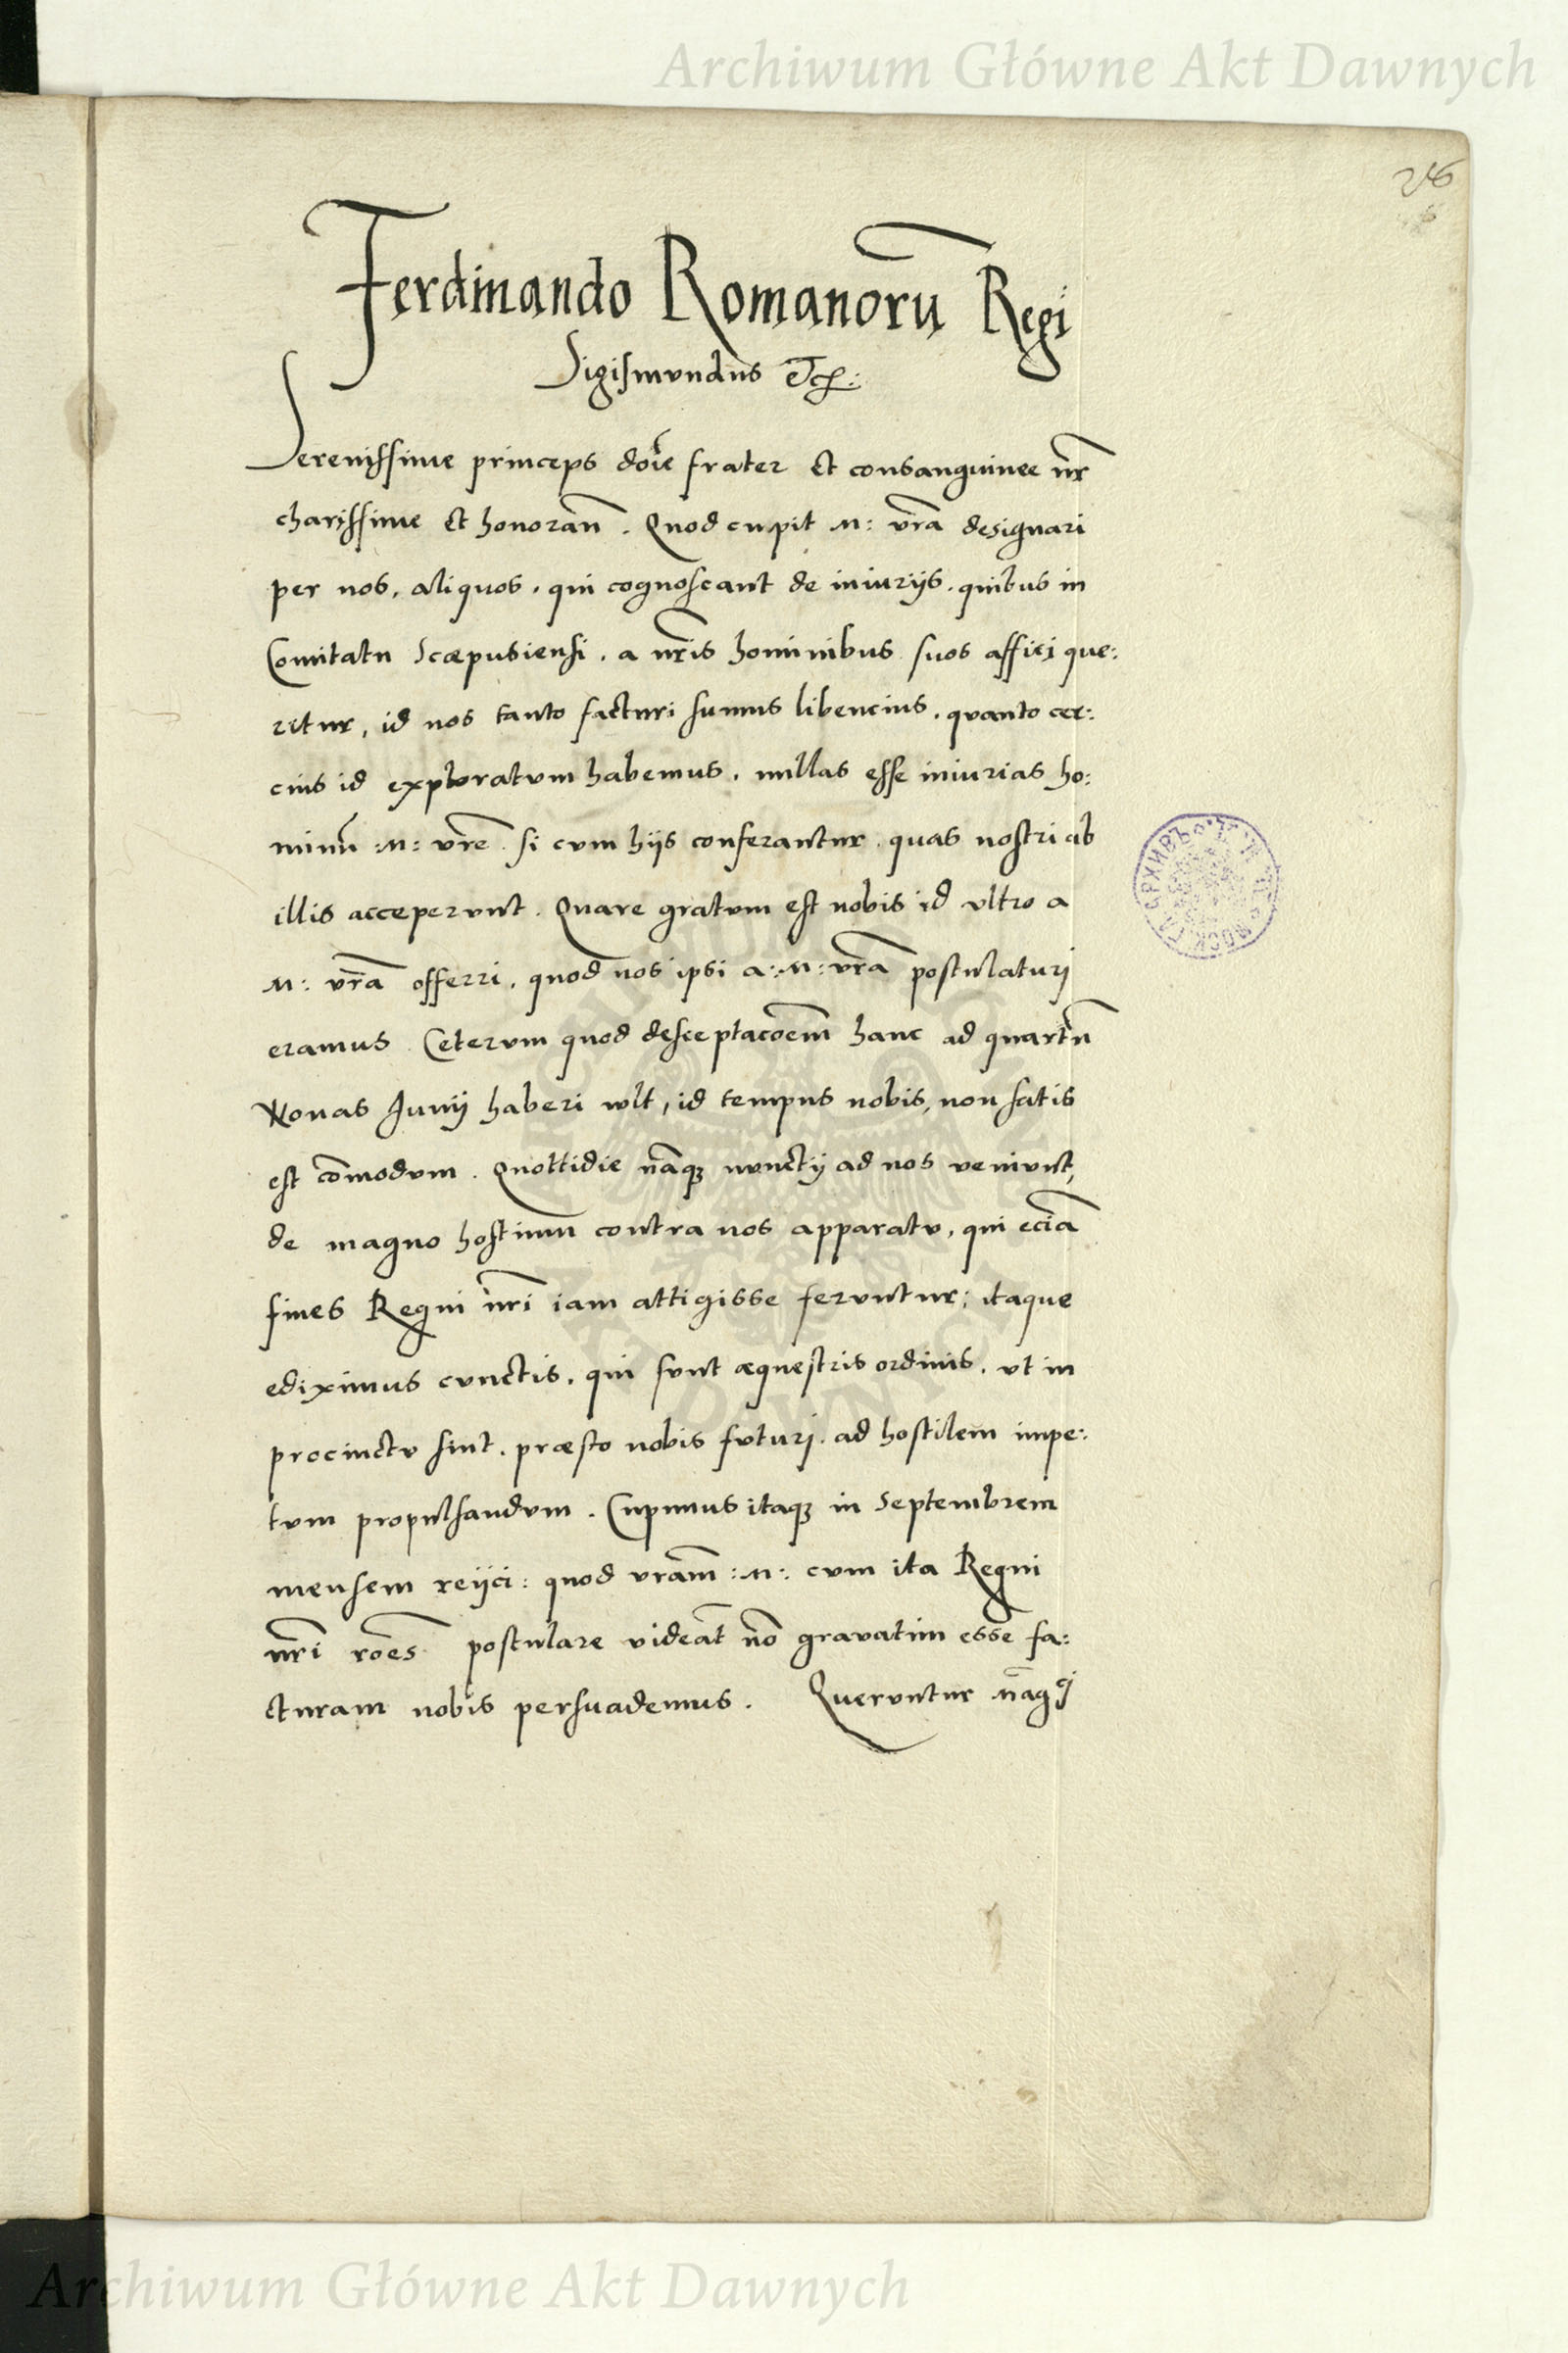 Archiwum Główne Akt Dawnych
Ferdinando Romanorū Regi
Sigismundus Etc:
Serenissime princeps dōīe frater et consanguinee nr̄
charissime et honoran̄. Quod cupit M: vr̄a designari
per nos, aliquos, qui cognoscant de iniurijs, quibus in
Comitatu Scæpusiensi, a nr̄is hominibus suos affici que:
ritur, id nos tanto facturi sumus libencius, quanto cer:
cius id exploratum habemus, nullas esse iniurias ho:
minū :M: vr̄e. si cum hijs conferantur, quas nostri ab
illis acceperunt. Quare gratum est nobis id vltro a
M: vr̄a offerri, quod nos ipsi a :M: vr̄a postulaturi
eramus. Ceterum quod desceptacōem hanc ad quartū
Nonas Junij haberi wlt, id tempus nobis, non satis
est cōmodum. Quottidie nāqꝫ nunctij ad nos veniunt,
de magno hostium contra nos apparatu, qui eciā
fines Regni nr̄i iam attigisse feruntur; itaque
ediximus cunctis, qui sunt æquestris ordinis, vt in
procinctu sint, præsto nobis futuri, ad hostilem impe:
tum propulsandum. Cupimus itaqꝫ in Septembrem
mensem reijci: quod vr̄am :M: cum ita Regni
nr̄i rōes postulare videāt nō gravatim esse fa:
cturam nobis persuademus. Queruntur nāqꝫ
Archiwum Główne Akt Dawnych